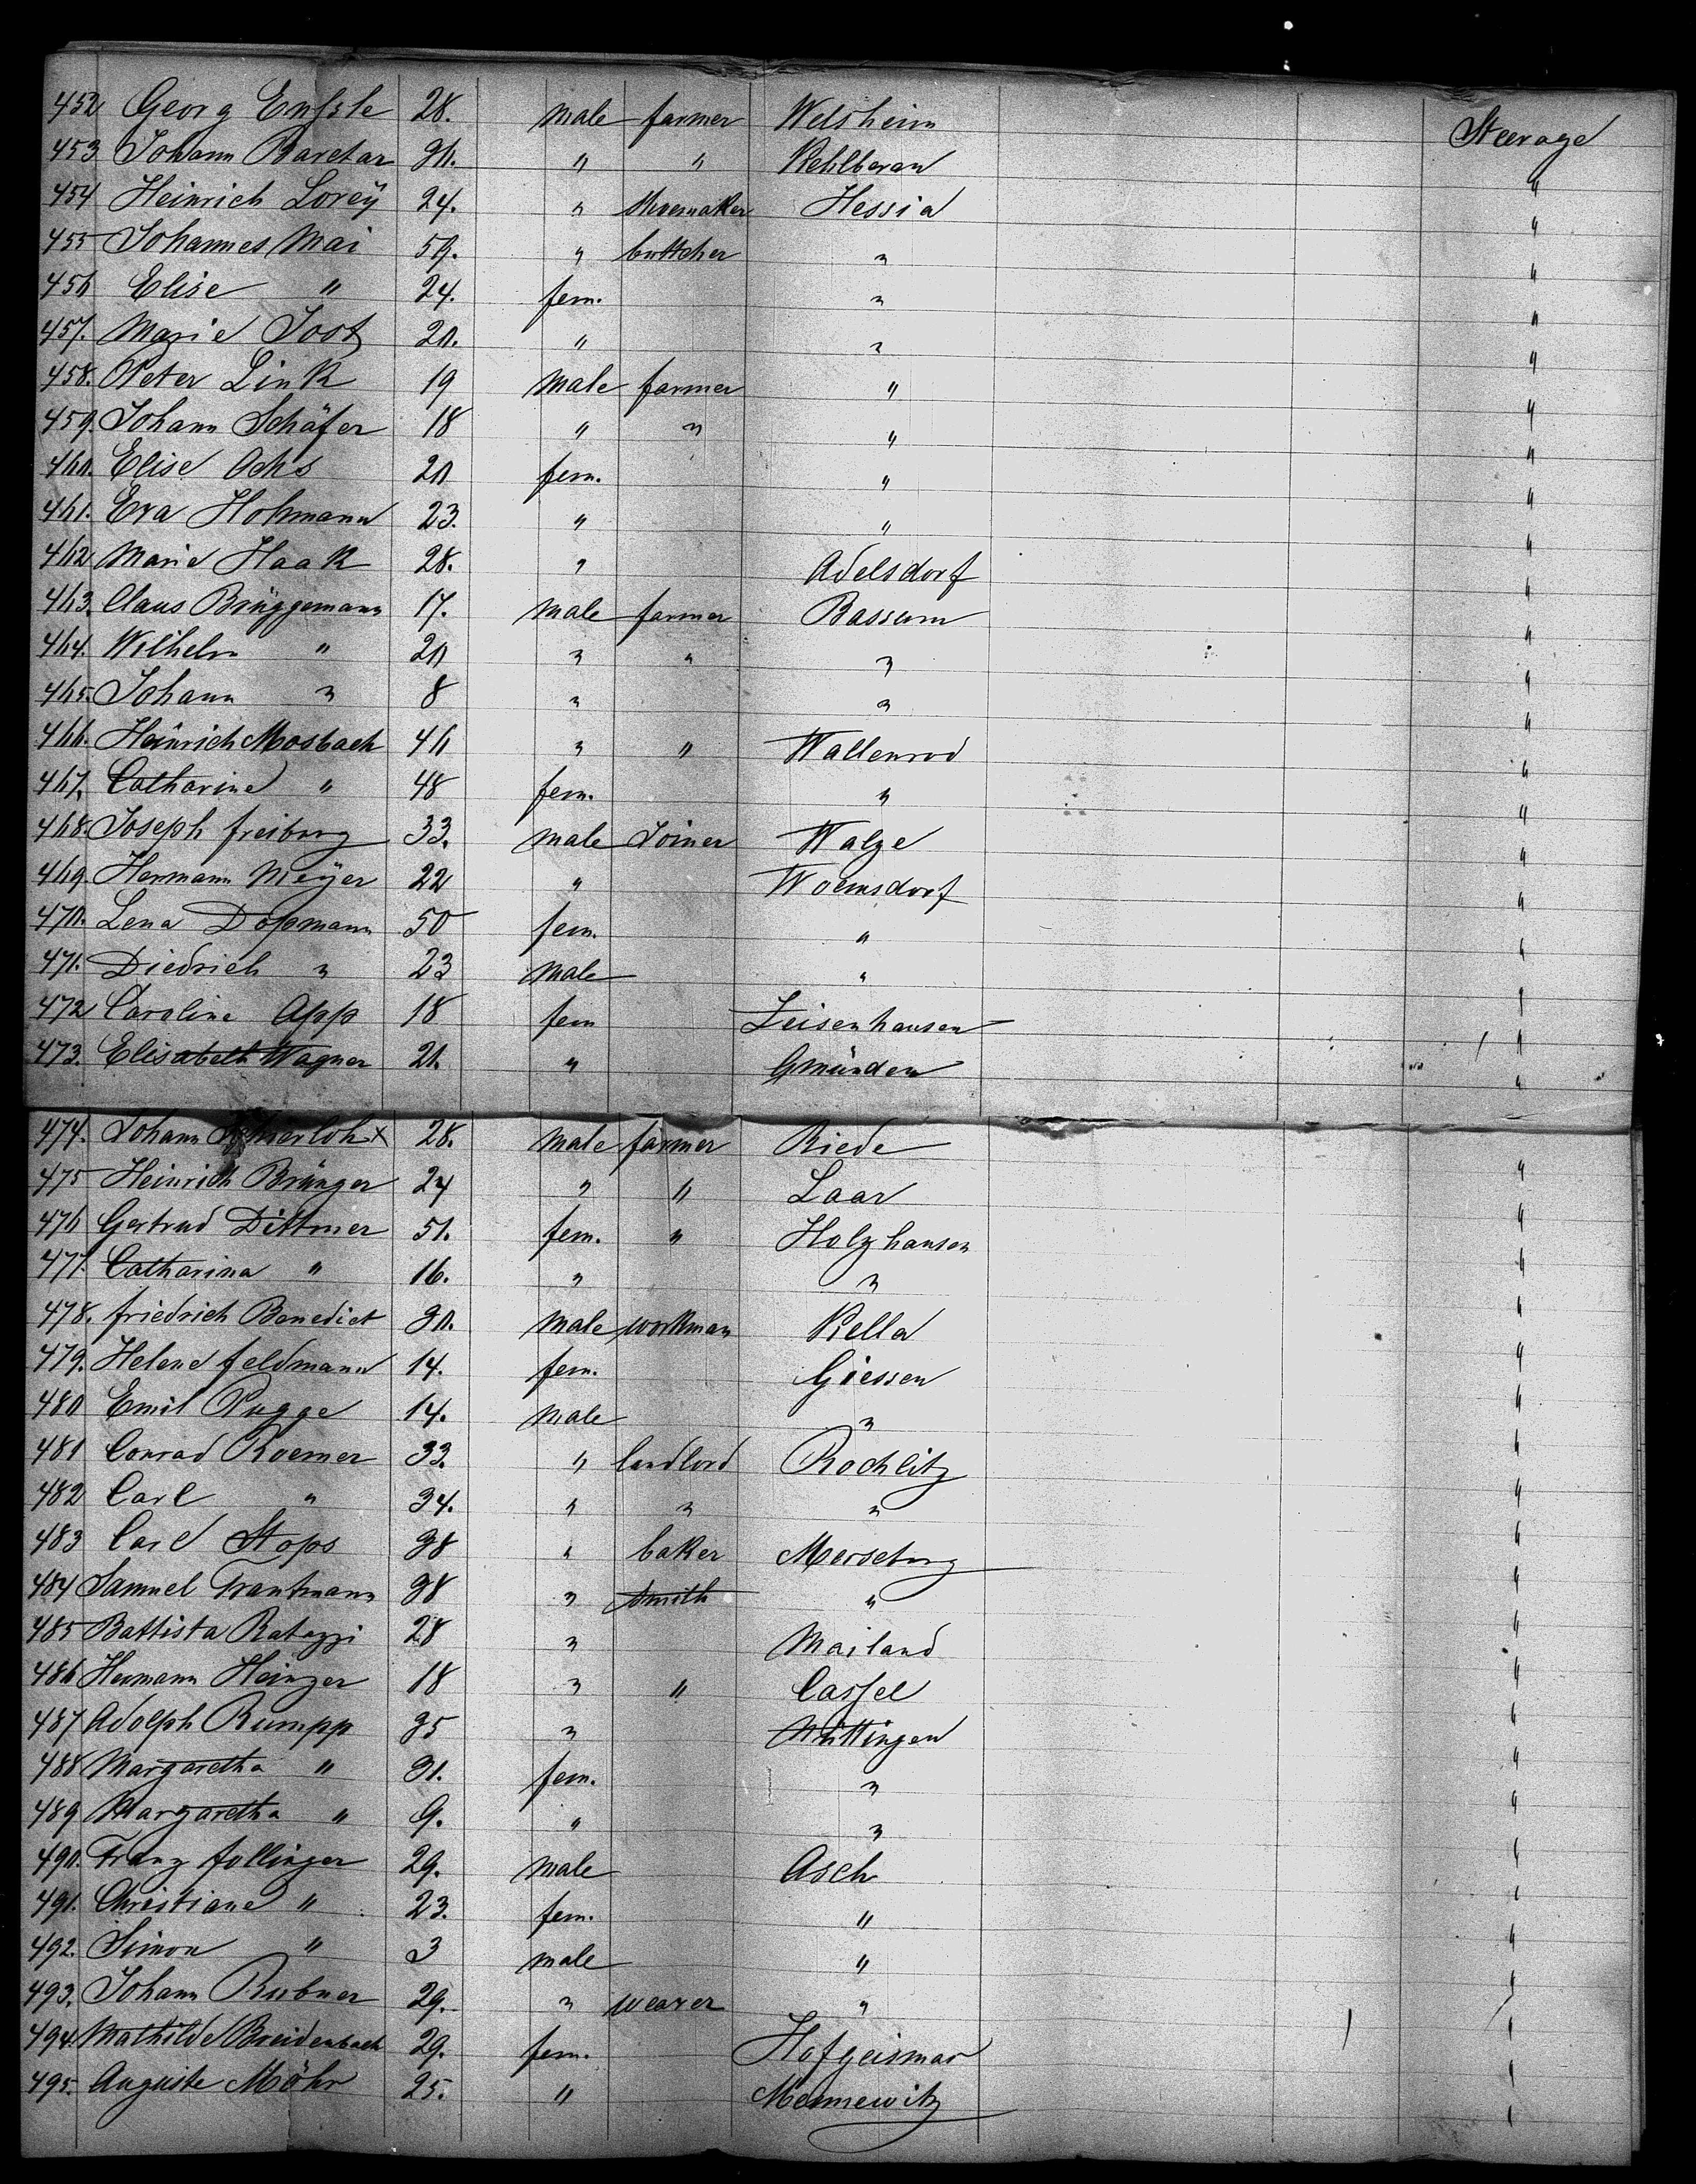 452 Georg Enssle 28. male farmer Welsheim Steerage
453 Johann Baretar 30. " " "
454 Heinrich Loreÿ 24. " Shoemaker Hessia "
455 Johannes Mai 59. " bottcher " "
456 Elise " 24. fem. " "
457. Marie Jost 20. " " "
458. Peter Link 19 male farmer " "
459. Johann Schäfer 18 " " " "
460. Elise Ochs 20 fem. " "
461. Eva Hohmann 23. " " "
462 Marie Haak 28. " Adelsdorf "
463. Claus Brüggemann 17. male farmer Bassum "
464. Wilhelm " 20 " " " "
465. Johann " 8 " " "
466. Heinrich Mosbach 46 " " Wallenrod "
467. Catharine " 48 fem. " "
468. Joseph freiburg 33. male Joiner Walze "
469. Hermann Meÿer 22 " Woemsdorf "
470. Lena Dopmann 50 fem. " "
471. Diedrich " 23 male " "
472 Caroline App 18 fem Zeisenhausen "
473. Elisabeth Wagner 21. " Gmünden "
474. Johann x 28. male farmer Riede "
475 Heinrich Brünger 24 " " Laar "
476 Gertrud Dittmer 51. fem. " Holzhausen "
477. Catharina " 16. " " "
478. friedrich Benedict 30. male workman Kella "
479. Helene feldmann 14. fem. Giessen "
480 Emil Pugge 14. male " "
481 Conrad Roemer 33. " landlord Rochlitz "
482 Carl " 34. " " " "
483 Carl Stops 38 " baker Merseburg "
484 Samuel Trautmann 38 " smith " "
485 Battista Ratazzi 28 " Mailand "
486 Hermann Heinzer 18 " " Cassel "
487 Adolph Rumpp 35 " Nüttingen "
488 Margaretha " 31. fem. " "
489 Margaretha " 9. " " "
490. Franz follinger 29. male Asch "
491. Christiane " 23. fem. " "
492. Simon " 3 male " "
493. Johann Rubner 29. " weaver " "
494. Mathilde Breidenbach 29. fem. Hofgeismar "
495. Auguste Möhr 25. " Mennewitz "